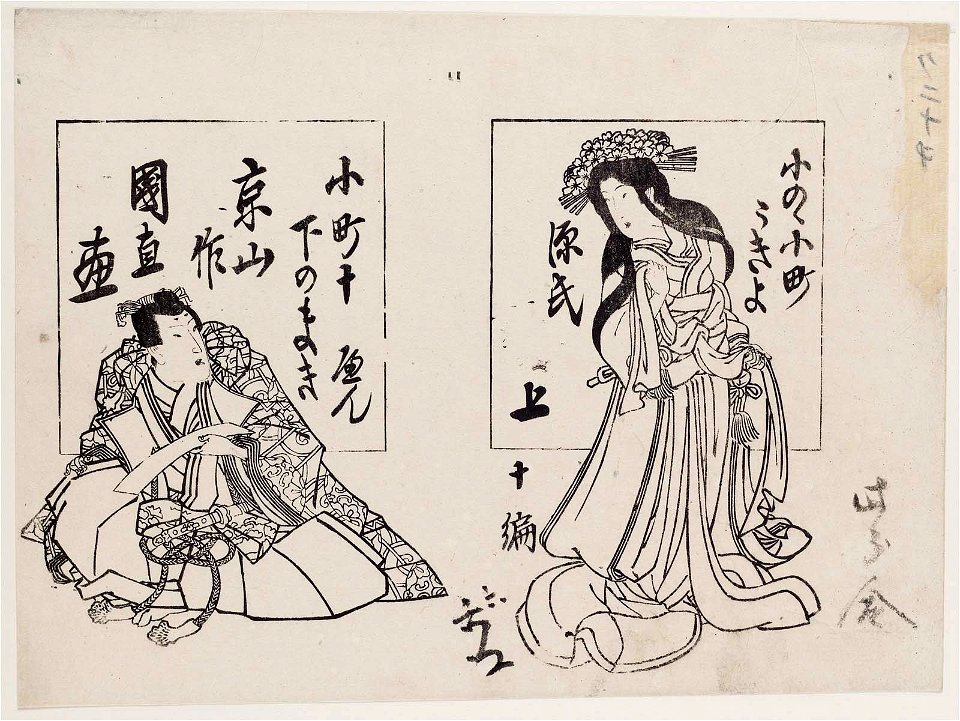 小のゝ小町
うきよ
源氏
上
十編
小町十へん
下のまき
京山
作
國直
画